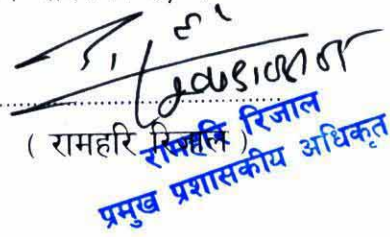 ( रामहरि रिजाल )
रामहरि रिजाल
प्रमुख प्रशासकीय अधिकृत